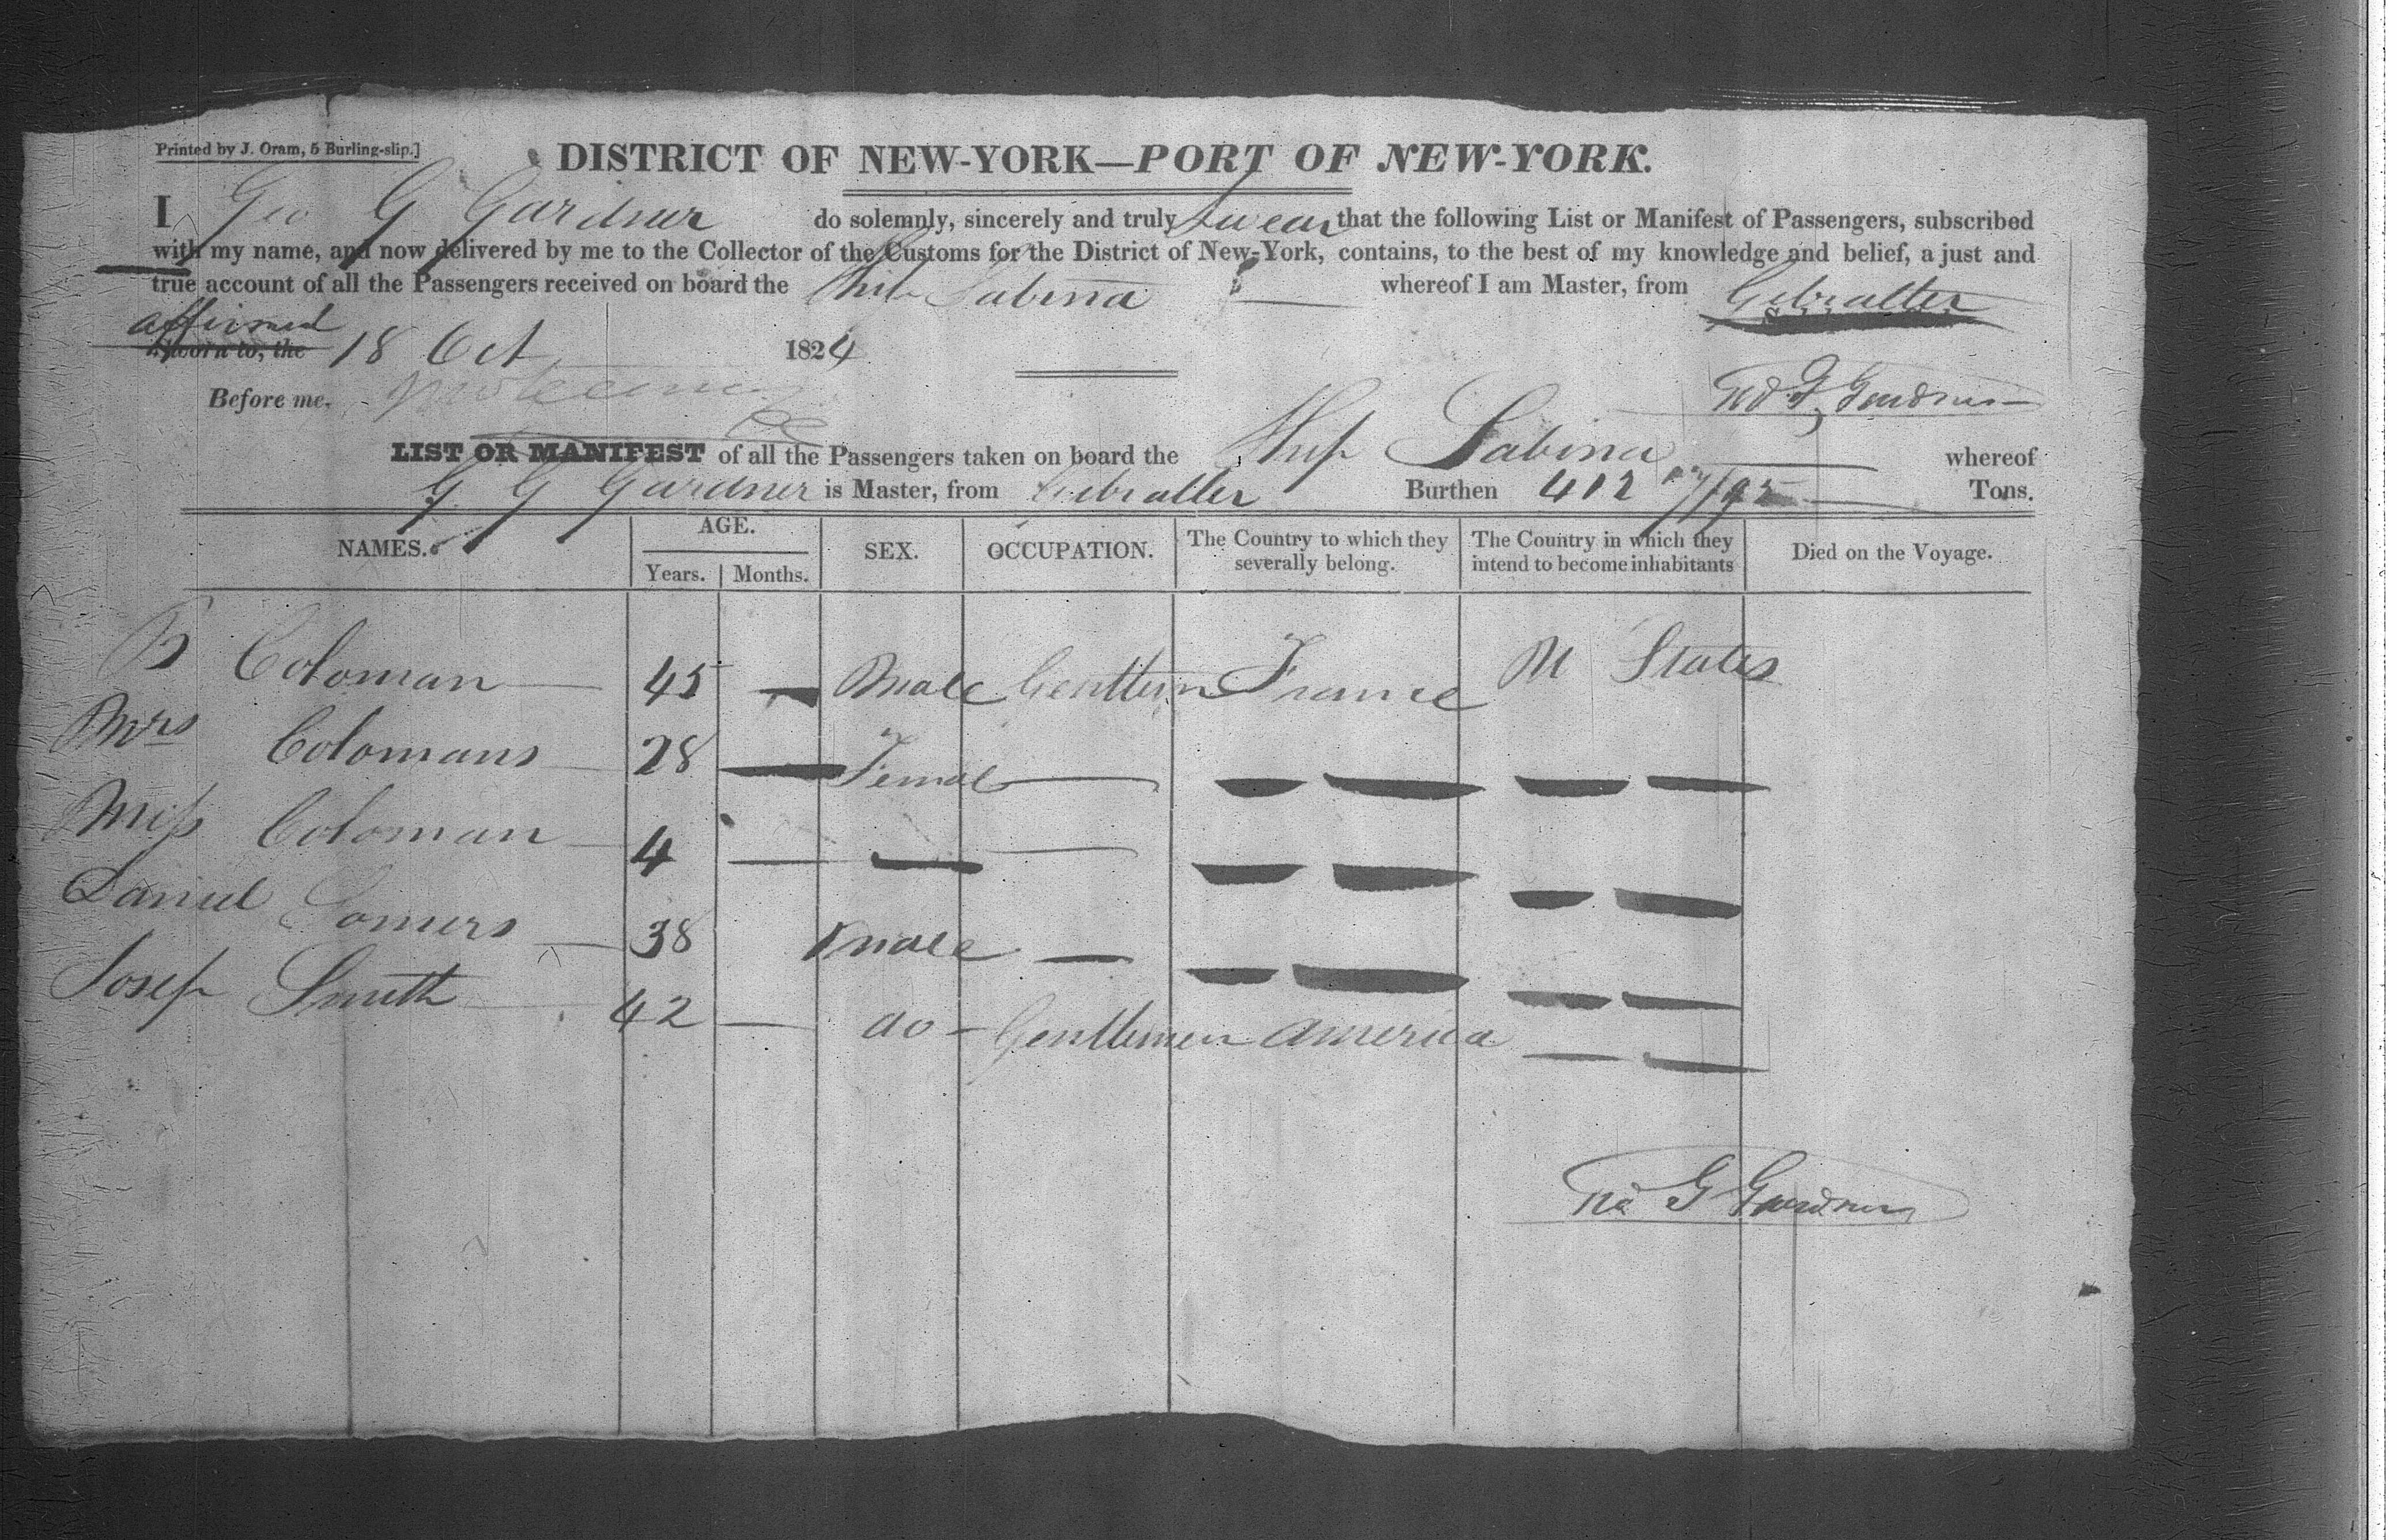 Printed by J. Oram, 5 Burling-slip.]
DISTRICT OF NEW-YORK—PORT OF NEW-YORK.
I Geo G Gardner do solemnly, sincerely and truly Swear that the following List or Manifest of Passengers, subscribed
with my name, and now delivered by me to the Collector of the Customs for the District of New-York, contains, to the best of my knowledge and belief, a just and
true account of all the Passengers received on board the Ship Sabina whereof I am Master, from Gibralter
affirmed
Sworn to, the 18 Oct 1824
Before me. Geo G Gardner
LIST OR MANIFEST of all the Passengers taken on board the Ship Sabina whereof
G G Gardner is Master, from Gibralter Burthen 412 /95 Tons.
NAMES. AGE. SEX. OCCUPATION. The Country to which they severally belong. The Country in which they intend to become inhabitants Died on the Voyage.
Years. Months.
B Coloman 45 Male Gentlem France U States
Mrs Colomans 28 Femal
Miss Coloman 4
Daniel Somers 38 male
Josep Smith 42 do Gentlemen America
Geo G Gardner